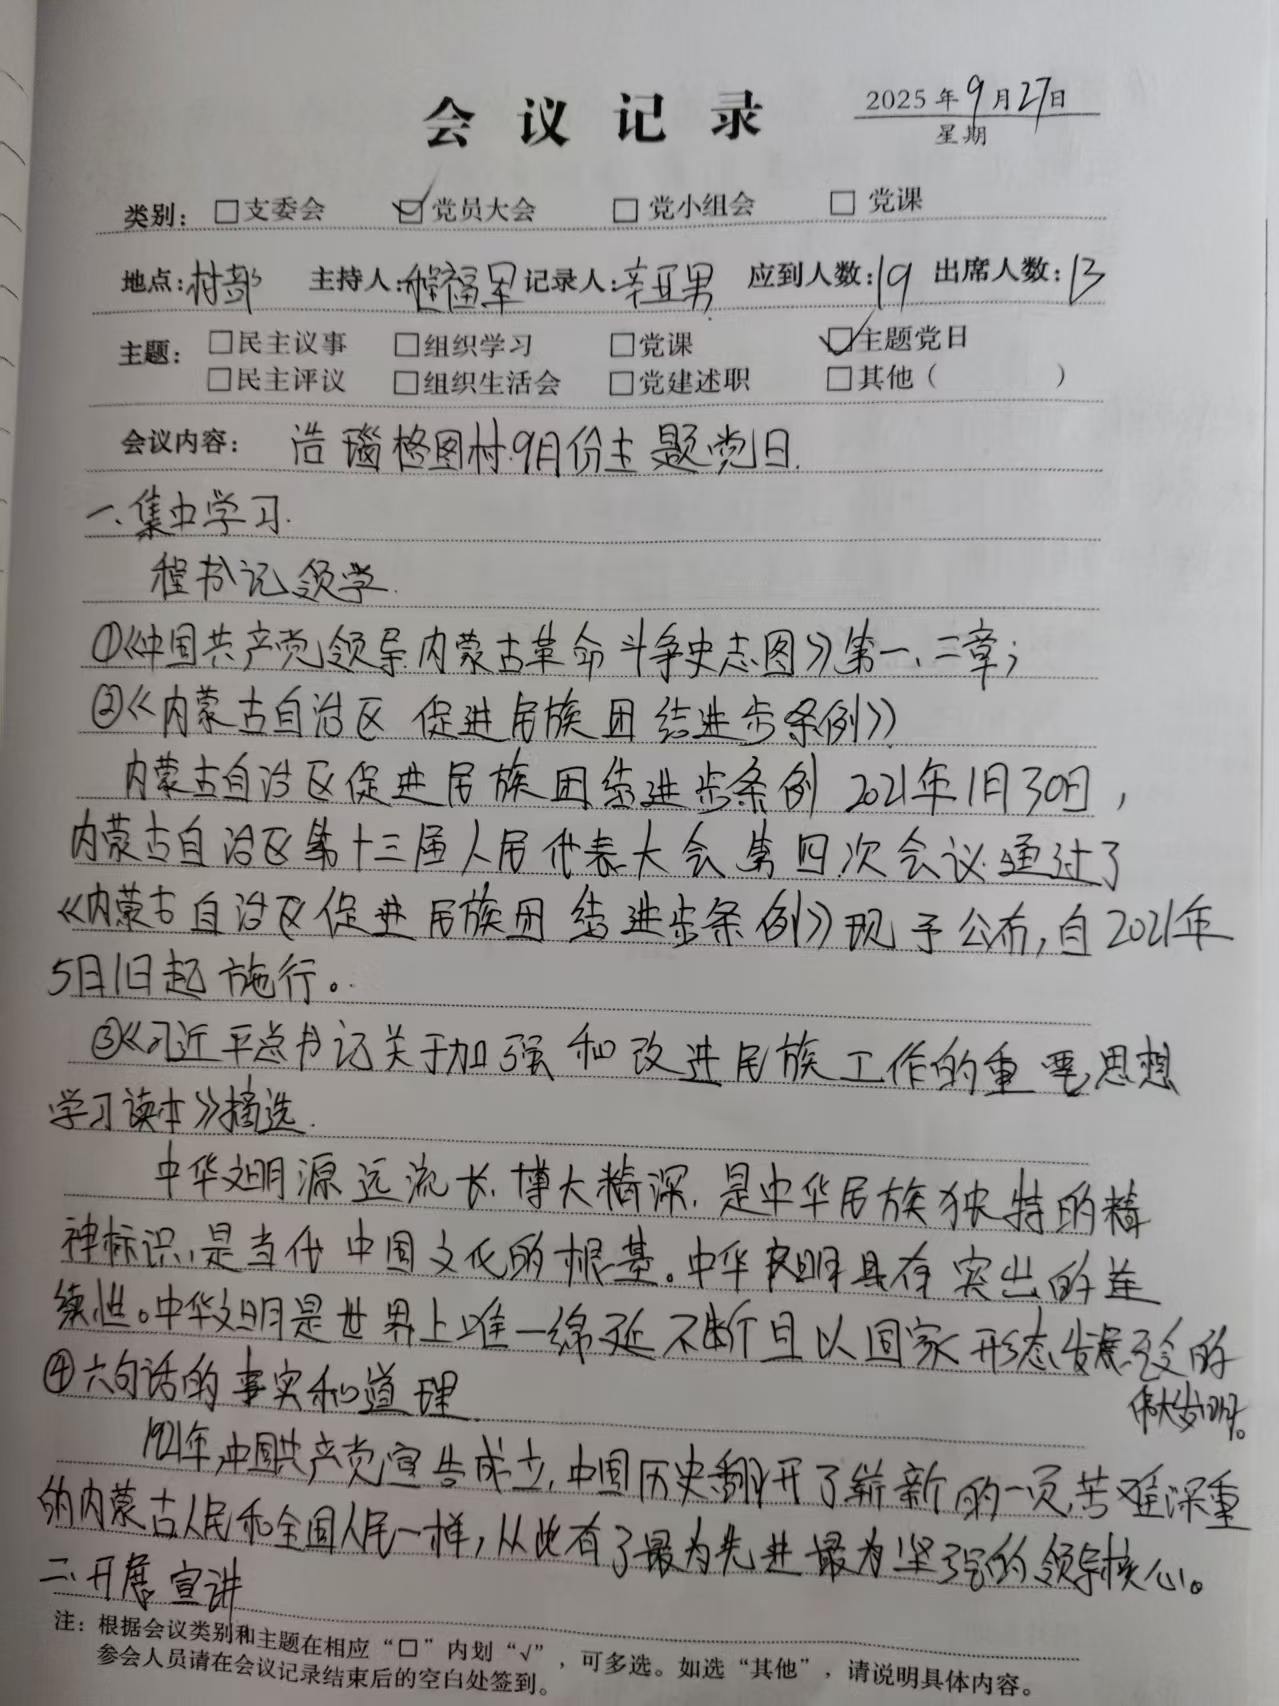 会议记录
2025年9月27日
星期
类别：□支委会 ☑党员大会 □党小组会 □党课
地点：村部 主持人：程福军 记录人：辛亚男 应到人数：19 出席人数：13
主题：□民主议事 □组织学习 □党课 ☑主题党日
□民主评议 □组织生活会 □党建述职 □其他（ ）
会议内容：浩瑙格图村9月份主题党日.
一、集中学习.
程书记领学.
①《中国共产党领导内蒙古革命斗争史志图》第一、二章；
②《内蒙古自治区促进民族团结进步条例》
内蒙古自治区促进民族团结进步条例 2021年1月30日，
内蒙古自治区第十三届人民代表大会第四次会议通过了
《内蒙古自治区促进民族团结进步条例》现予公布，自2021年
5月1日起施行。
③《习近平总书记关于加强和改进民族工作的重要思想
学习读本》摘选.
中华文明源远流长、博大精深，是中华民族独特的精
神标识，是当代中国文化的根基。中华文明具有突出的连
续性。中华文明是世界上唯一绵延不断且以国家形态发展至今的
伟大文明。
④六句话的事实和道理
1921年，中国共产党宣告成立，中国历史翻开了崭新的一页，苦难深重
的内蒙古人民和全国人民一样，从此有了最为先进最为坚强的领导核心。
二、开展宣讲
注：根据会议类别和主题在相应“□”内划“√”，可多选。如选“其他”，请说明具体内容。
参会人员请在会议记录结束后的空白处签到。